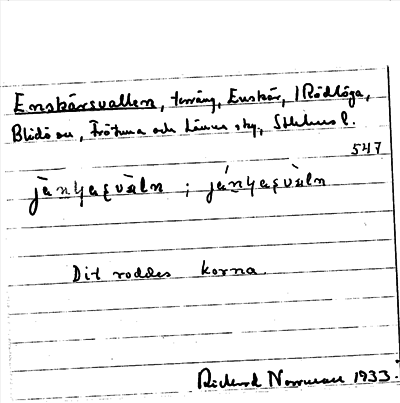 Enskärsvallen, terräng, Enskär, i Rödlöga,
Blidö sn, Frötuna och Länna sky, Sthlms l.
547
Dit roddes korna.
Rickard Norrman 1933.